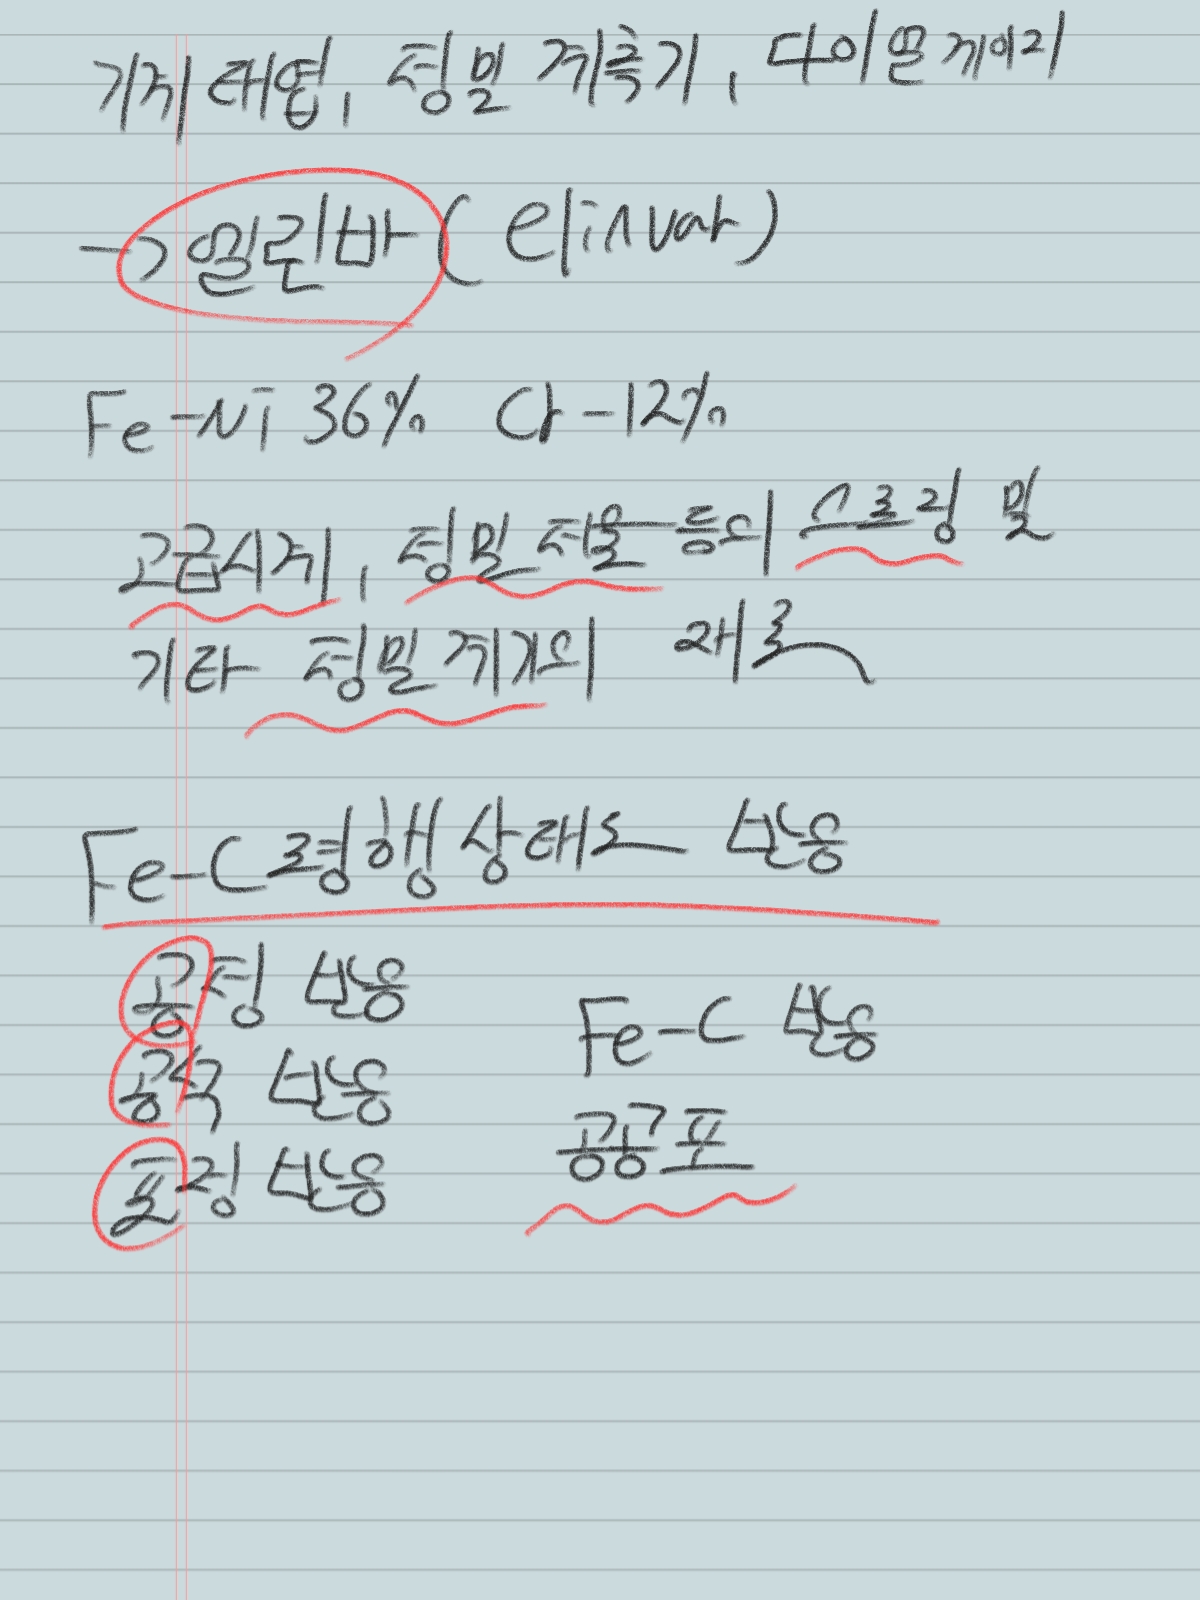 기계 태엽, 정밀 계측기, 다이얼 게이지
→ 엘린바 (elinvar)
Fe-Ni 36% Cr-12%
고급시계, 정밀 저울 등의 스프링 및
기타 정밀계기의 재료
Fe-C 평형상태도 반응
공정 반응
공석 반응
포정 반응
Fe-C 반응
공공포